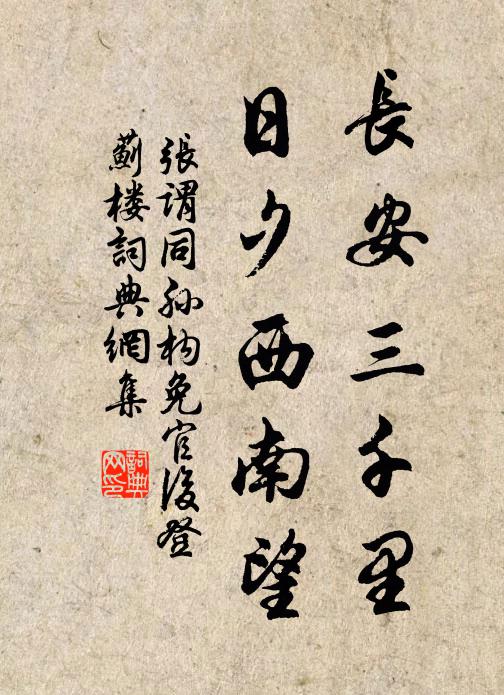 長安三千里
日夕西南望
張謂同孫构免官後登
薊楼詞典網集
詞典
网印